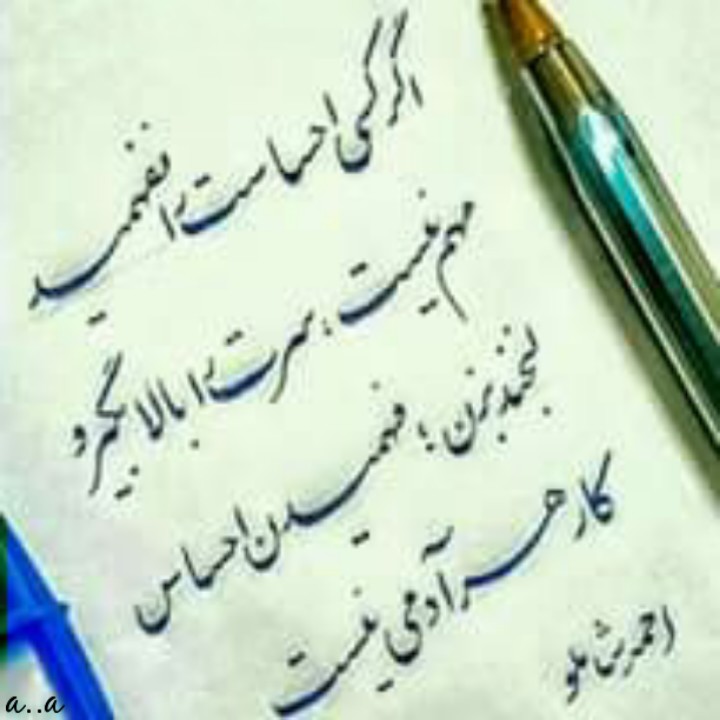 اگر کسی احساست را نفهمید
مهم نیست، سرت را بالا بگیر و
لبخند بزن؛ فهمیدن احساس
کار هر آدمی نیست
احمد شاملو
a..a